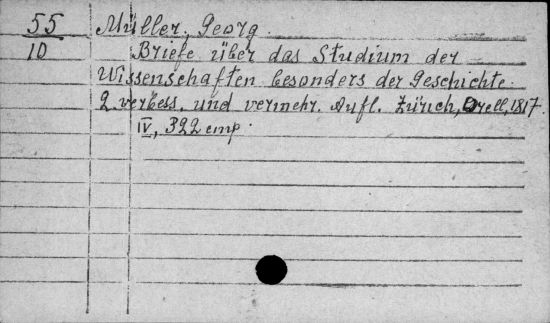 55 Müller, Georg.
10 Briefe über das Studium der
Wissenschaften besonders der Geschichte.
2. verbess. und vermehr. Aufl. Zürich, Orell, 1817.
IV, 322 стр.